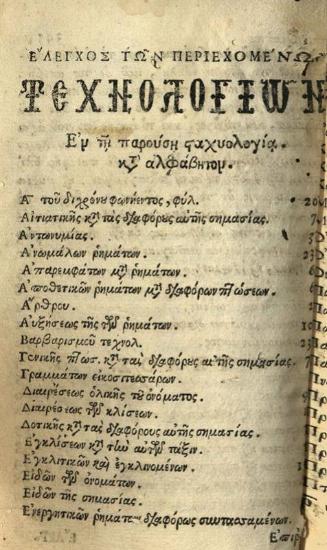 ΕΛΕΓΧΟΣ ΤΩΝ ΠΕΡΙΕΧΟΜΕΝΩ
ΤΕΧΝΟΛΟΓΙΩΝ
Ἐν τῇ παρούσῃ ταχυολογίᾳ.
κτ̀ ἀλφάβητον.
Α τοῦ διχρόνου φωνήεντος, φύλ.
Αἰτιατικῆς κτ̀ τὰς διαφόρους αὐτῆς σημασίας.
Ἀντωνυμίας.
Ἀνωμάλων ῥημάτων.
Ἀπαρεμφάτων μτ̀ ῥημάτων.
Ἀποθετικῶν ῥημάτων μτ̀ διαφόρων πτώσεων.
Ἄρθρου.
Αὐξήσεως τῆς τῶν ῥημάτων.
Βαρβαρισμοῦ τεχνολ.
Γενικῆς πτώσ. κτ̀ τὰς διαφόρους αὐτῆς σημασίας.
Γραμμάτων εἰκοσιτεσσάρων.
Διαιρέσεως ὁλικῆς τοῦ ὀνόματος.
Διαιρέσεως τῶν κλίσεων.
Δοτικῆς κτ̀ τὰς διαφόρους αὐτῆς σημασίας.
Ἐγκλίσεων κτ̀ τὴν αὐτῶν τάξιν.
Ἐγκλιτικῶν καὶ ἐγκλινομένων.
Εἰδῶν τῶν ὀνομάτων.
Εἰδῶν τῆς σημασίας.
Ἐνεργητικῶν ῥημάτων διαφόρως συντασσαμένων.